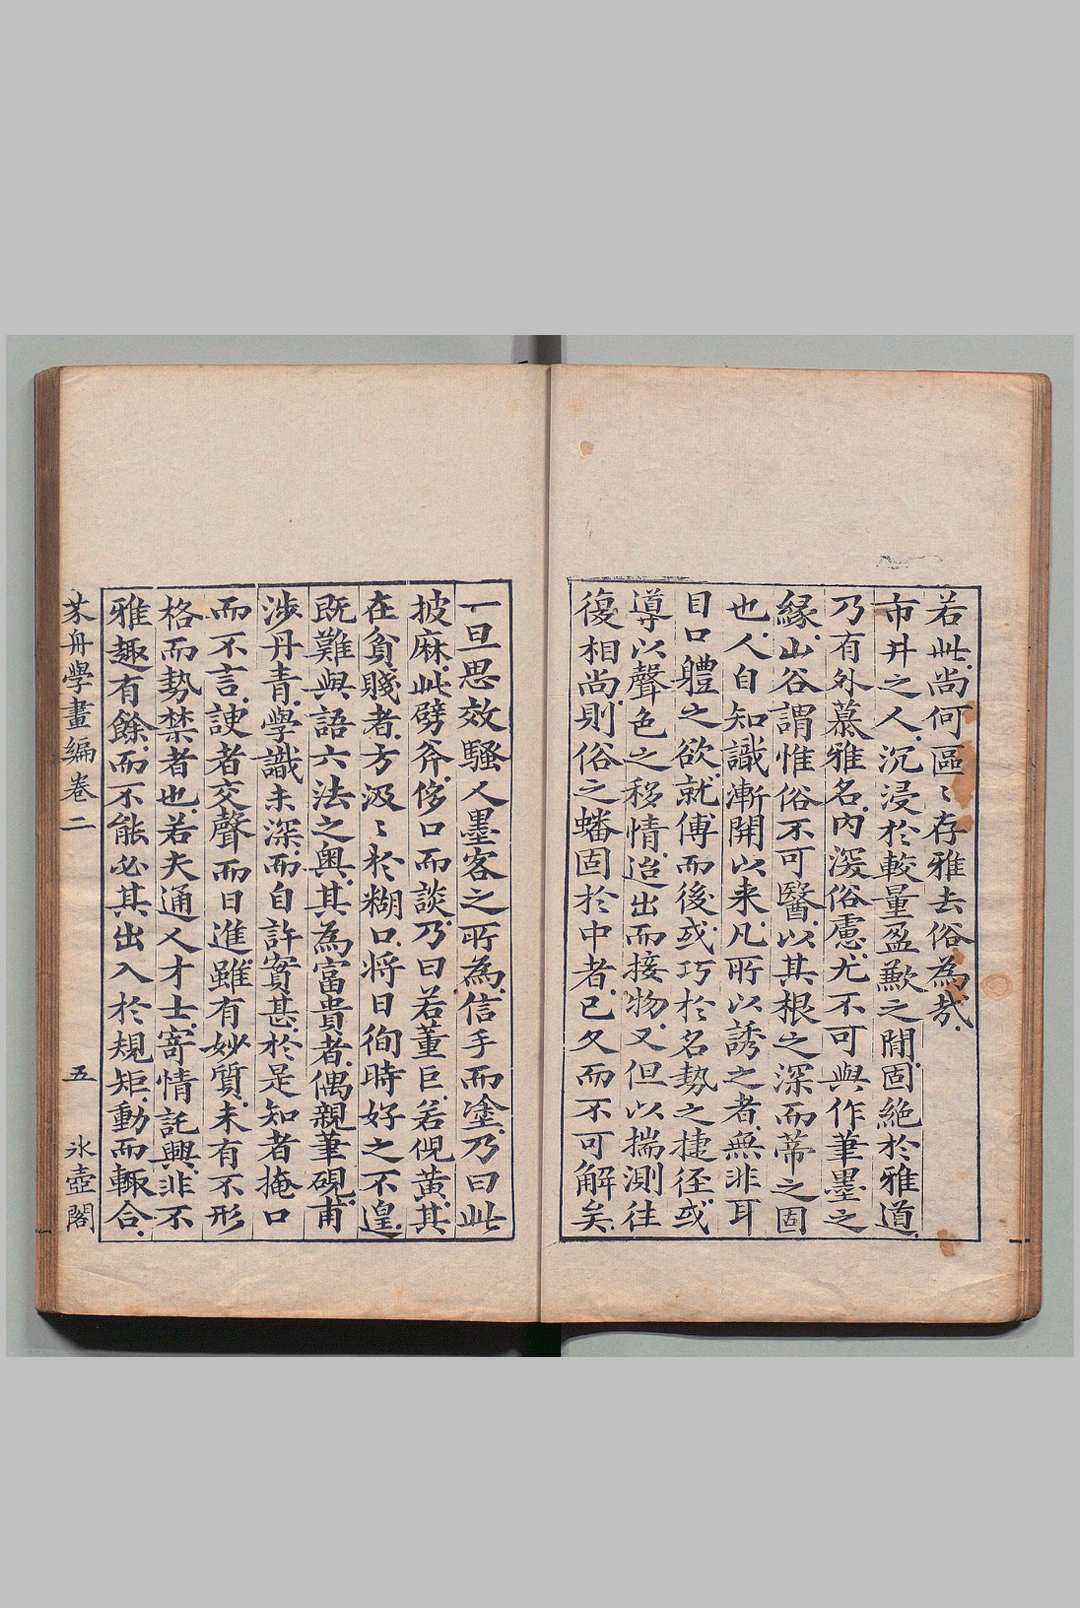 若此尚何區〻存雅去俗為哉
市井之人沉浸於較量盈歉之閒固絶於雅道
乃有外慕雅名內深俗慮尤不可與作筆墨之
緣山谷謂惟俗不可醫以其根之深而蒂之固
也人自知識漸開以来凡所以誘之者無非耳
目口體之欲就傅而後或巧於名勢之捷徑或
導以聲色之移情迨出而接物又但以揣測往
復相尚則俗之蟠固於中者已久而不可解矣
一旦思效騷人墨客之所為信手而塗乃曰此
披麻此劈斧侈口而談乃曰若董巨若倪黃其
在貧賤者方汲〻於糊口將日徇時好之不遑
既難與語六法之奧其為富貴者偶親筆硯甫
涉丹青學識未深而自許實甚於是知者掩口
而不言諛者交聲而日進雖有妙質未有不形
格而勢禁者也若夫通人才士寄情託興非不
雅趣有餘而不能必其出入於規矩動而輒合
芥舟學畫編卷二 五 氷壺閣